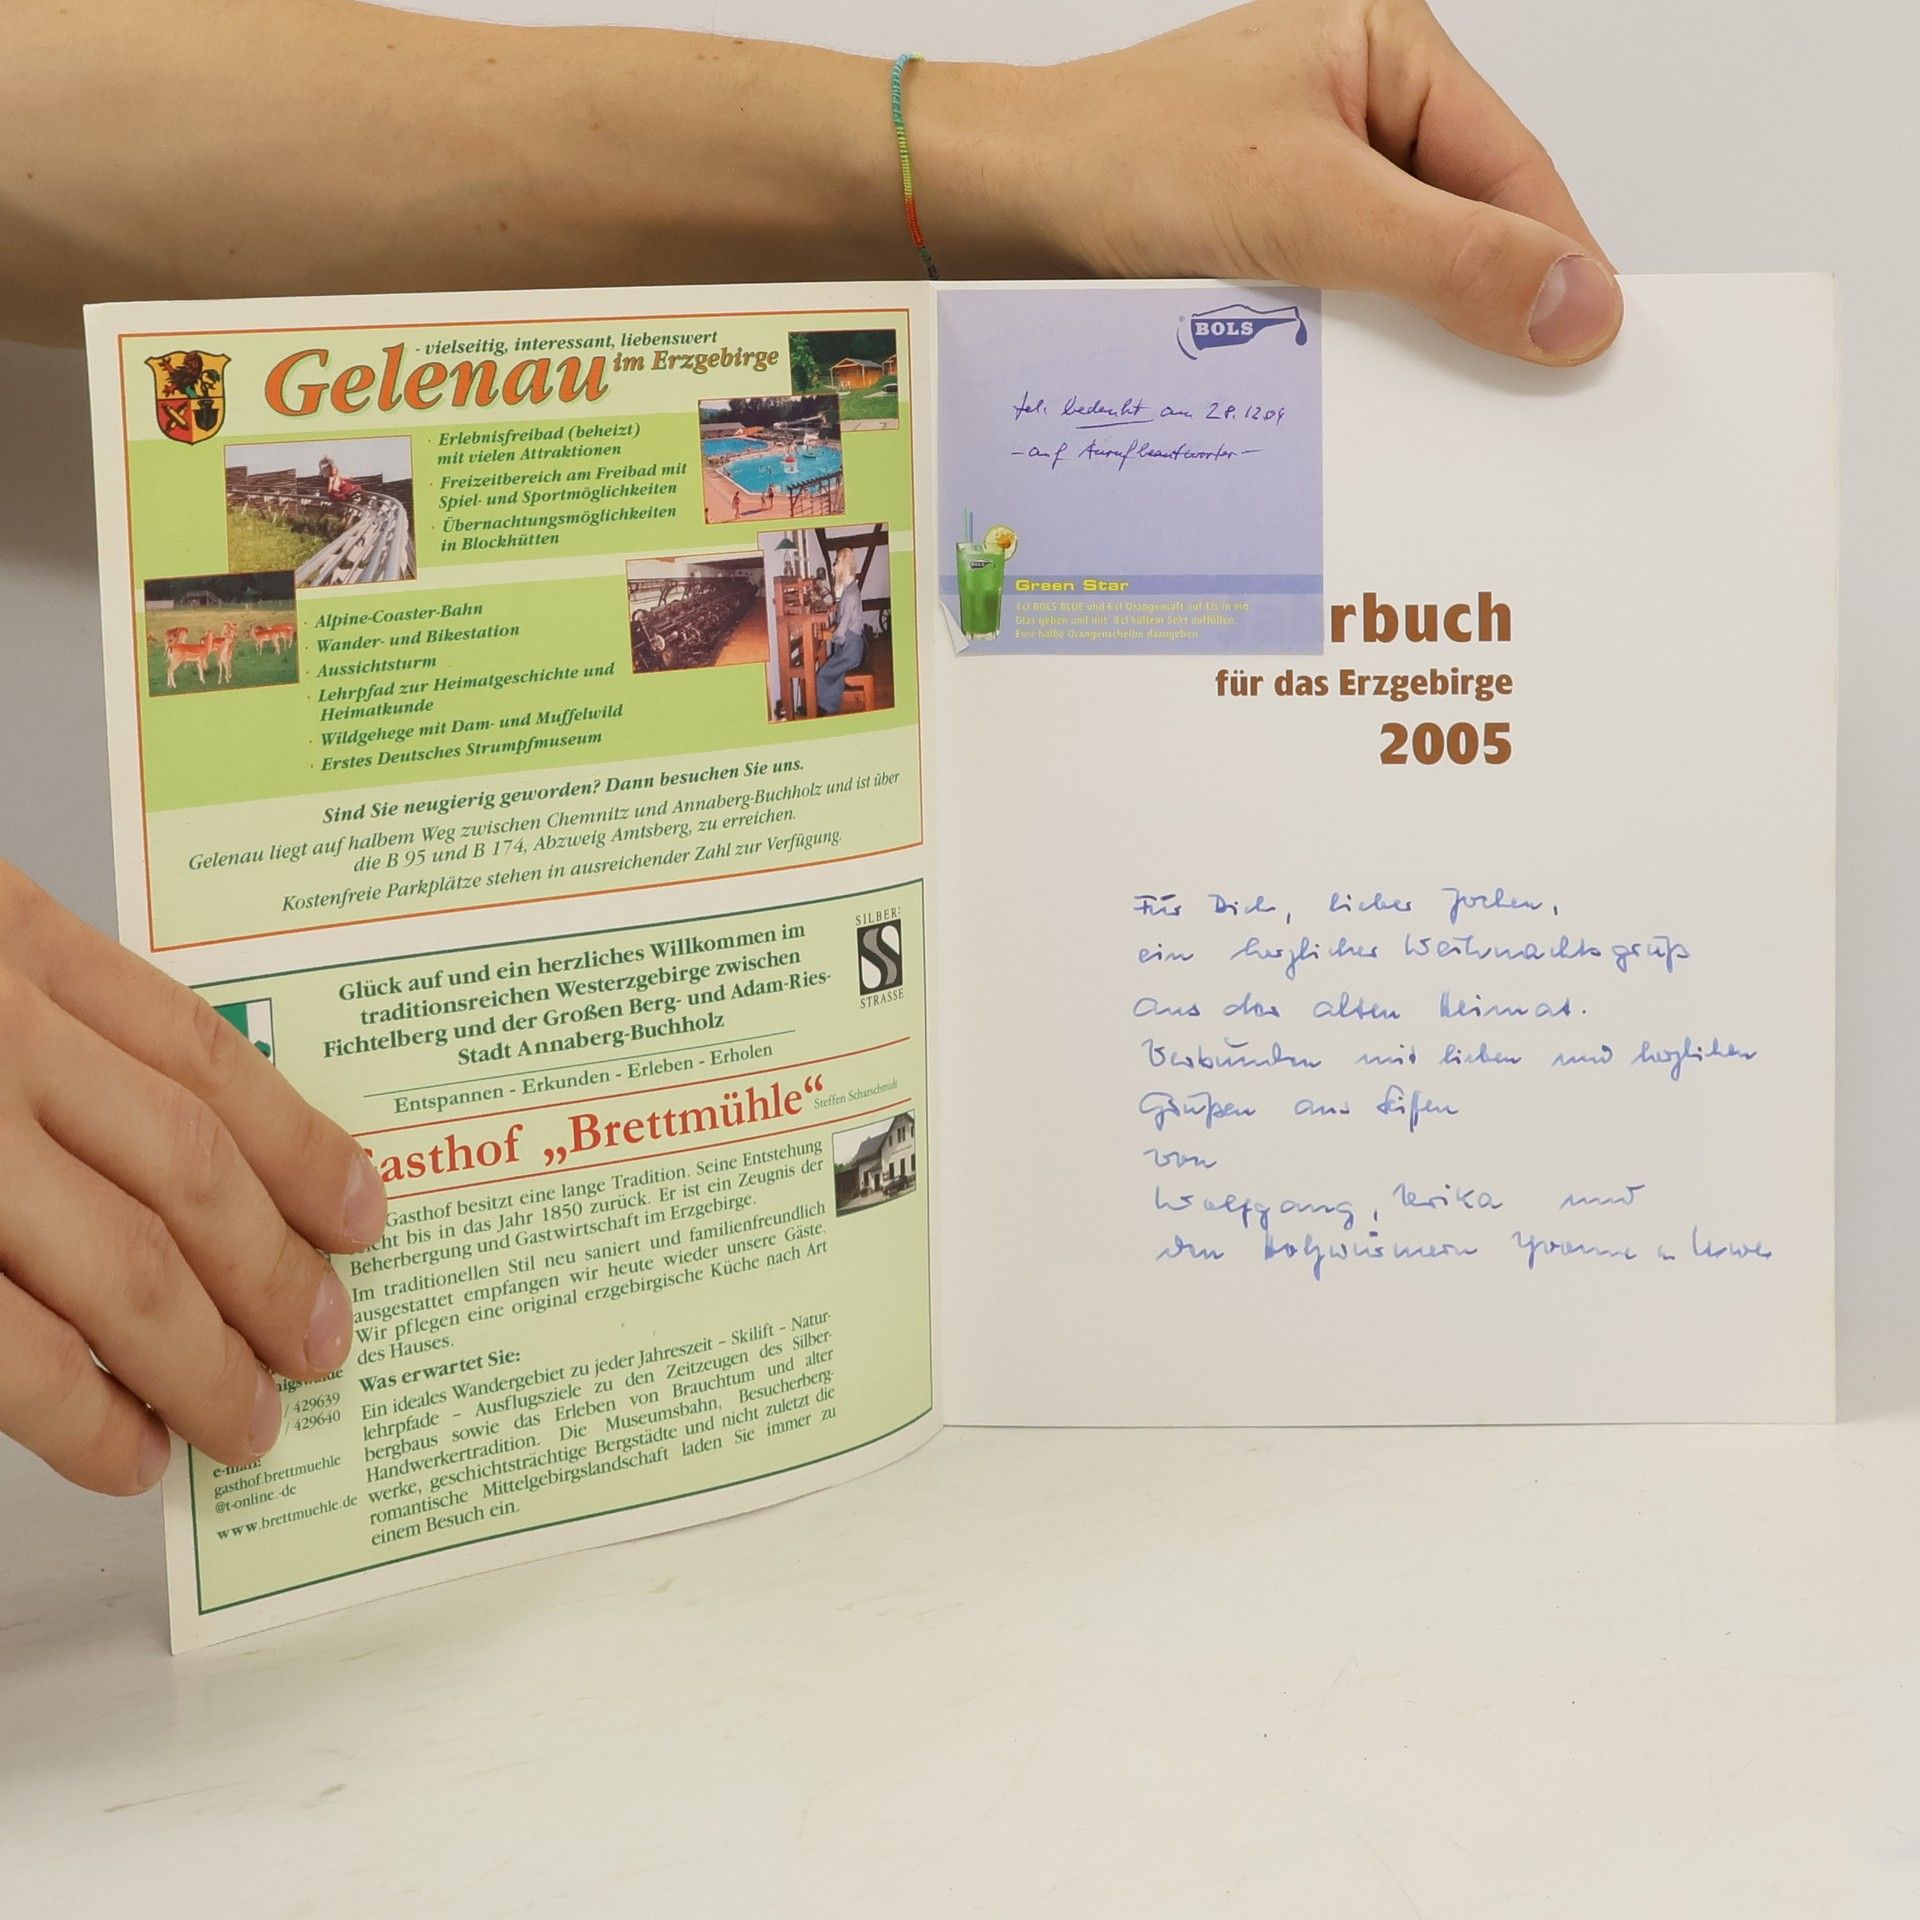 - vielseitig, interessant, liebenswert
Gelenau im Erzgebirge
· Erlebnisfreibad (beheizt)
mit vielen Attraktionen
· Freizeitbereich am Freibad mit
Spiel- und Sportmöglichkeiten
· Übernachtungsmöglichkeiten
in Blockhütten
· Alpine-Coaster-Bahn
· Wander- und Bikestation
· Aussichtsturm
· Lehrpfad zur Heimatgeschichte und
Heimatkunde
· Wildgehege mit Dam- und Muffelwild
· Erstes Deutsches Strumpfmuseum
Sind Sie neugierig geworden? Dann besuchen Sie uns.
Gelenau liegt auf halbem Weg zwischen Chemnitz und Annaberg-Buchholz und ist über
die B 95 und B 174, Abzweig Amtsberg, zu erreichen.
Kostenfreie Parkplätze stehen in ausreichender Zahl zur Verfügung.
Glück auf und ein herzliches Willkommen im
traditionsreichen Westerzgebirge zwischen
Fichtelberg und der Großen Berg- und Adam-Ries-
Stadt Annaberg-Buchholz
SILBER
STRASSE
Entspannen - Erkunden - Erleben - Erholen
asthof „Brettmühle“
Steffen Scharschmidt
Gasthof besitzt eine lange Tradition. Seine Entstehung
cht bis in das Jahr 1850 zurück. Er ist ein Zeugnis der
Beherbergung und Gastwirtschaft im Erzgebirge.
Im traditionellen Stil neu saniert und familienfreundlich
ausgestattet empfangen wir heute wieder unsere Gäste.
Wir pflegen eine original erzgebirgische Küche nach Art
des Hauses.
Was erwartet Sie:
Ein ideales Wandergebiet zu jeder Jahreszeit – Skilift – Natur-
lehrpfade – Ausflugsziele zu den Zeitzeugen des Silber-
bergbaus sowie das Erleben von Brauchtum und alter
Handwerkertradition. Die Museumsbahn, Besucherberg-
werke, geschichtsträchtige Bergstädte und nicht zuletzt die
romantische Mittelgebirgslandschaft laden Sie immer zu
einem Besuch ein.
/ 429639
/ 429640
e-mail:
gasthof.brettmuehle
@t-online.-de
www.brettmuehle.de
BOLS
tel. bedankt am 28.12.04
- auf Anrufbeantworter -
Green Star
4 cl BOLS BLUE und 6 cl Orangensaft auf Eis in ein
Glas geben und mit 8 cl kaltem Sekt auffüllen.
Eine halbe Orangenscheibe dazugeben.
rbuch
für das Erzgebirge
2005
Für Dich, lieber Jochen,
ein herzlicher Weihnachtsgruß
aus der alten Heimat.
Verbunden mit lieben und herzlichen
Grüßen aus Seiffen
von
Wolfgang, Erika und
den Holzwürmern Yvonne u. Uwe